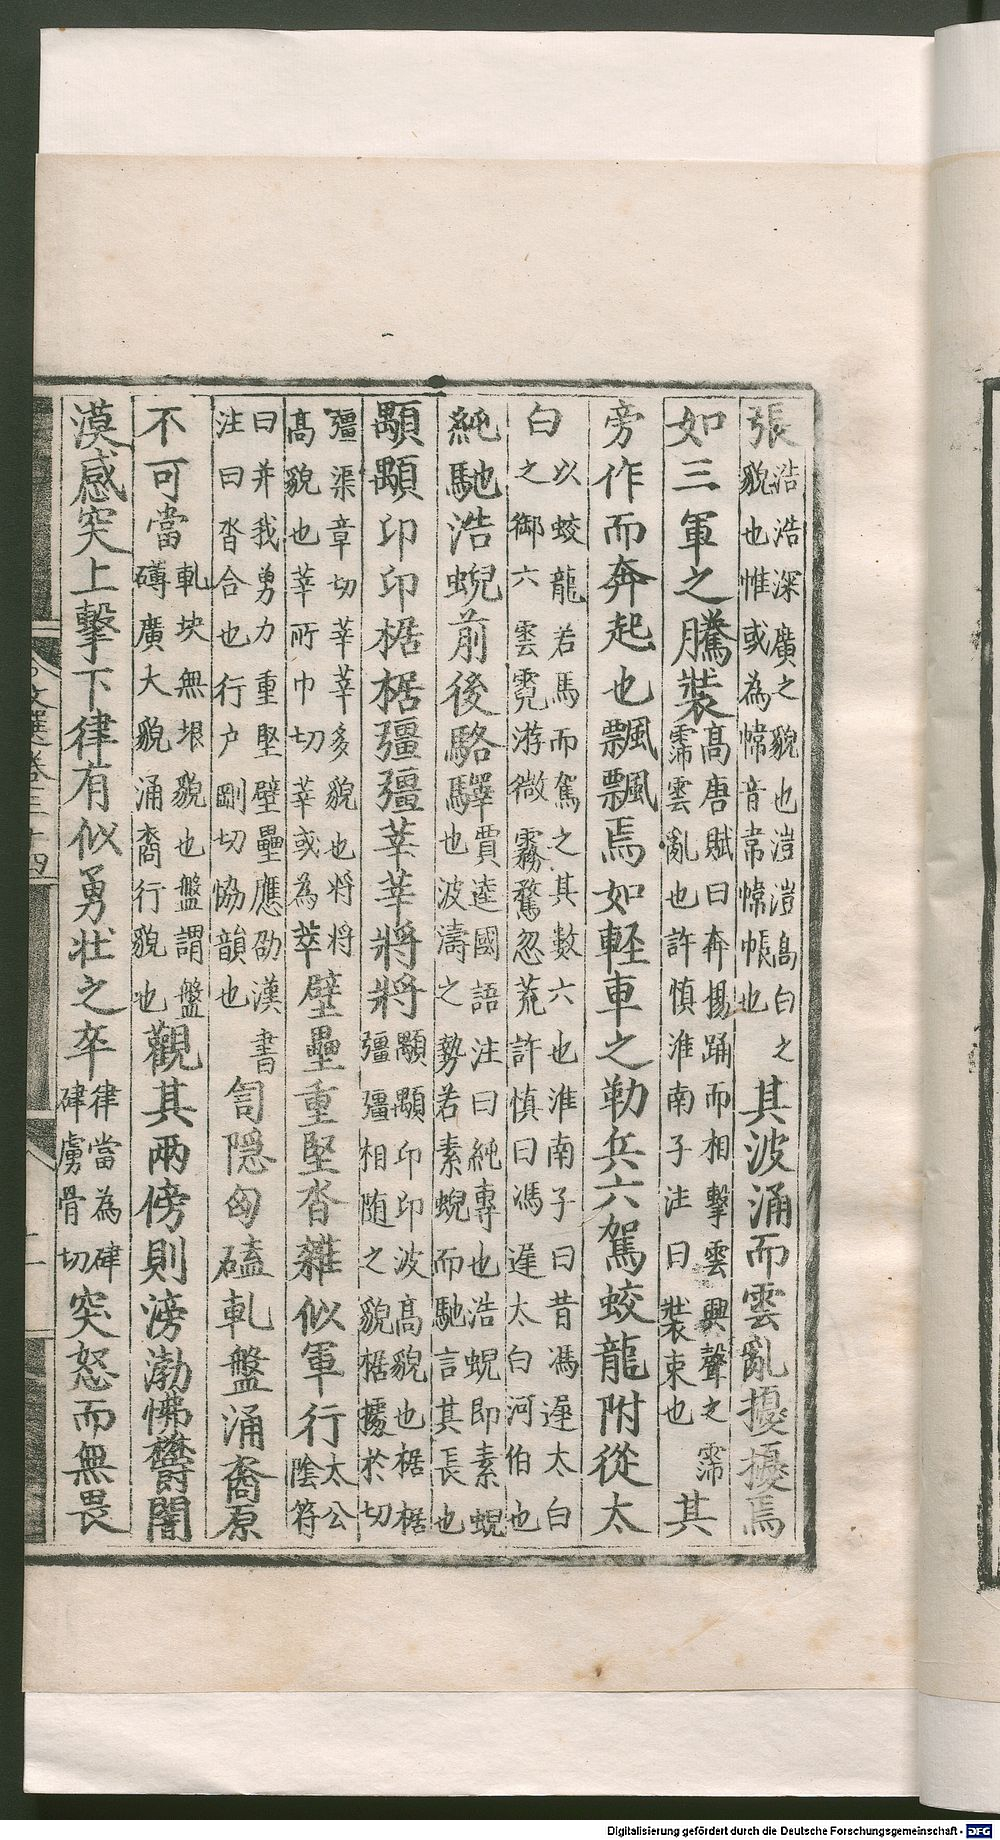 張浩浩深廣之貌也澄澄高白之貌也惟或為幃音韋幃帳也其波涌而雲亂擾擾焉
如三軍之騰裝高唐賦曰奔揚踊而相擊雲興聲之霈霈雲亂也許慎淮南子注曰裝束也其
旁作而奔起也飄飄焉如輕車之勒兵六駕蛟龍附從太
白以蛟龍若馬而駕之其數六也淮南子曰昔馮遲太白之御六雲霓游微霧騖忽荒許慎曰馮遲太白河伯也
純馳浩蜺前後駱驛賈逵國語注曰純專也浩蜺即素蜺也波濤之勢若素蜺而馳言其長也
顒顒卬卬椐椐彊彊莘莘將將顒顒卬卬波高貌也椐椐彊彊相随之貌椐據於切
彊渠章切莘莘多貌也将将高貌也莘所巾切莘或為萃壁壘重堅沓雜似軍行太公陰符
曰并我勇力重堅壁壘應劭漢書注曰沓合也行户剛切協韻也訇隱匈磕軋盤涌裔原
不可當軋坱無垠貌也盤謂盤礴廣大貌涌裔行貌也觀其兩傍則滂渤怫鬱闇
漠感突上擊下律有似勇壯之卒律當為硉硉虜骨切突怒而無畏
文選卷三十四
二
Digitalisierung gefördert durch die Deutsche Forschungsgemeinschaft - DFG